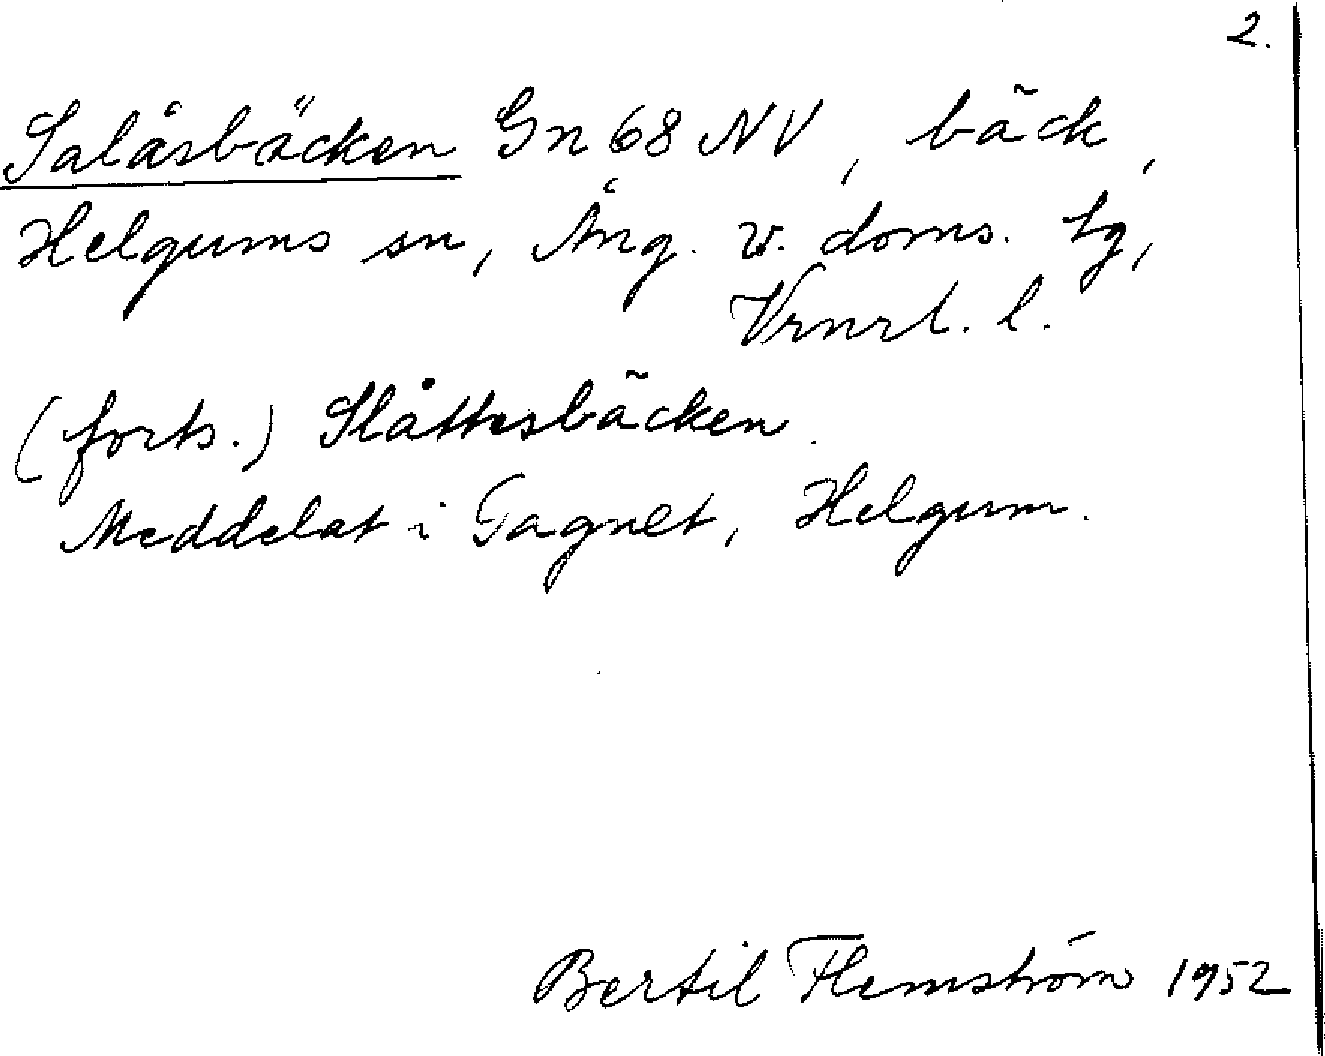 2.
Salåsbäcken Gn 68 NV, bäck,
Helgums sn, Ång. v. doms. tg,
Vrnrl. l.
(forts.) Slåttesbäcken.
Meddelat i Gagnet, Helgum.
Bertil Flemström 1952